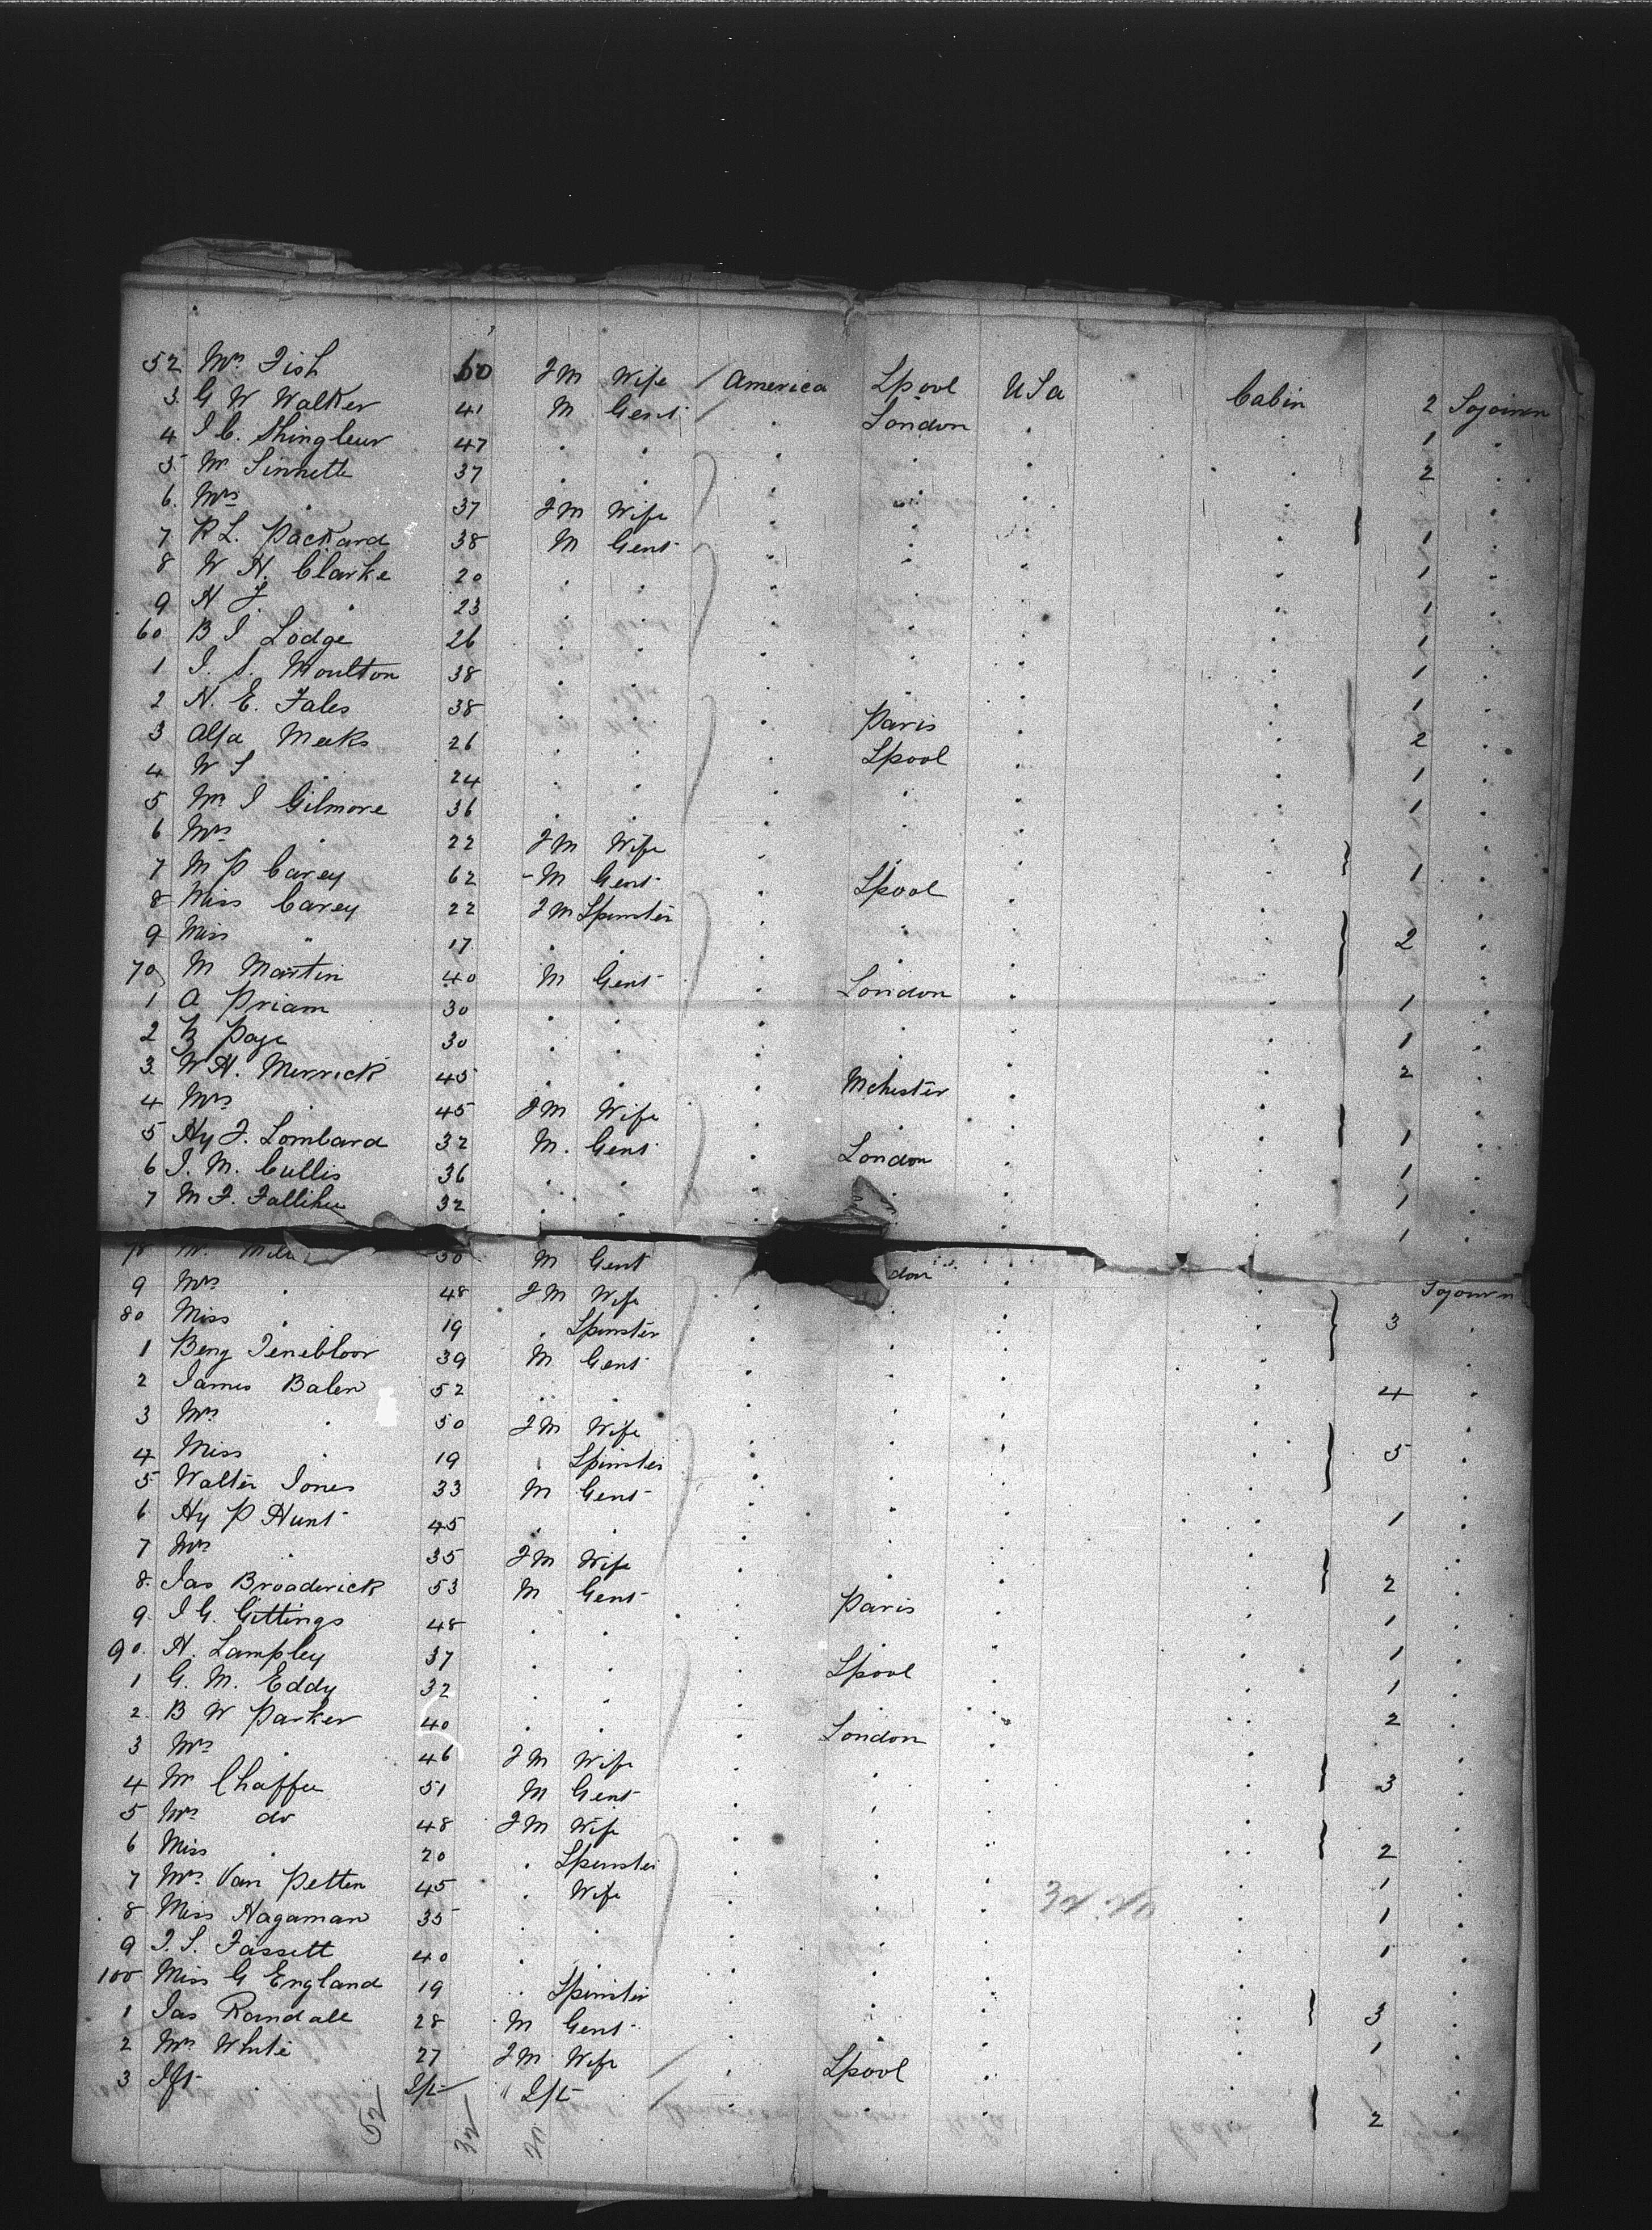 52 Mrs Fish 60 FM Wife America Lpool USa Cabin 2 Sojourn
3 G W Walker 41 M Gent London 1
4 I C. Shingleur 47 2
5 Mr Sinnette 37
6 Mrs 37 FM Wife
7 R L. Packard 38 M Gent 1
8 W H. Clarke 20 1
9 H J 23 1
60 B I Lodge 26 1
1 I. S. Moulton 38 1
2 H. E. Fales 38 Paris 1
3 Alfa Meeks 26 Lpool 2
4 W S 24 1
5 Mr I Gilmore 36 1
6 Mrs 22 FM Wife
7 M P Carey 62 M Gent Lpool 1
8 Miss Carey 22 FM Spinster
9 Miss " 17 2
70 M Martin 40 M Gent London
1 A Priam 30 1
2 Page 30 1
3 W H. Merrick 45 Mchester 2
4 Mrs 45 FM Wife
5 Hy F. Lombard 32 M. Gent London 1
6 I. M. Cullis 36 1
7 M F. Fallihee 32 1
78 M. 50 M Gent don 1
9 Mrs 48 FM Wife Sojourn
80 Miss 19 Spinster 3
1 Benj Tenebloor 39 M Gent
2 James Balen 52 4
3 Mrs 50 FM Wife
4 Miss 19 Spinster 5
5 Walter Jones 33 M Gent
6 Hy P Hunt 45 1
7 Mrs 35 FM Wife
8. Jas Broaderick 53 M Gent Paris 2
9 I G. Gittings 48 1
90. H. Lampley 37 Lpool 1
1 G. M. Eddy 32 1
2. B W Parker 40 London 2
3 Mrs 46 FM Wife
4 Mr Chaffee 51 M Gent 3
5 Mrs do 48 FM Wife
6 Miss 20 Spinster 2
7 Mrs Van Petten 45 Wife 1
8 Miss Hagaman 35 1
9 I. S. Fassett 40 1
100 Miss G England 19 Spinster
1 Jas Randall 28 M Gent 3
2 Mrs White 27 FM Wife Lpool 1
3 Ift Ift " Ift 2
52 32 20